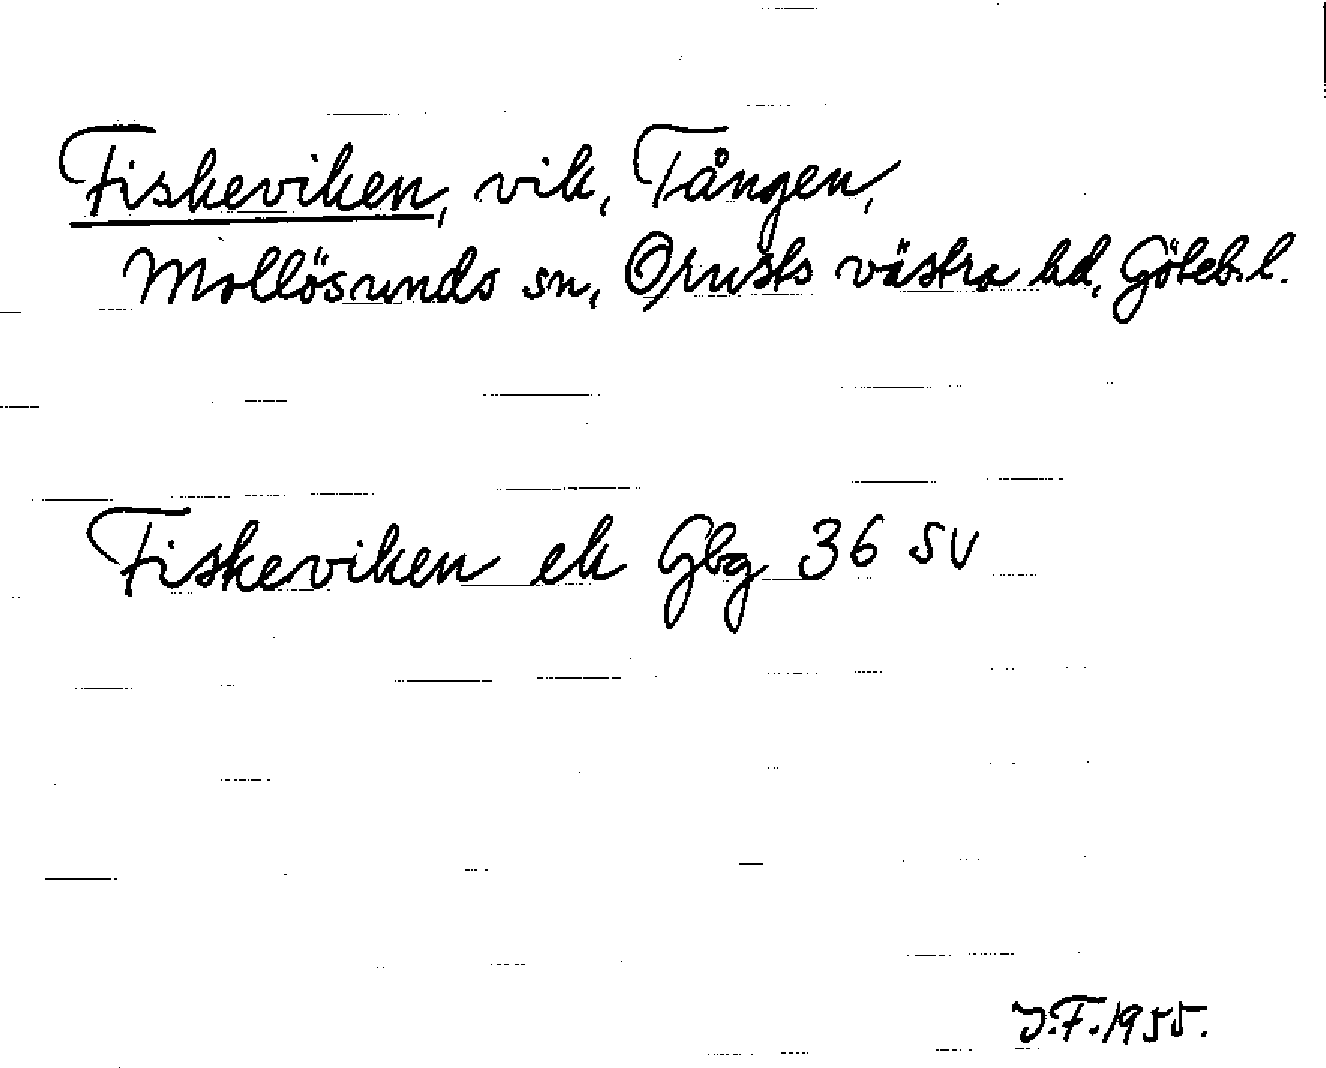 Fiskeviken, vik, Tången,
Mollösunds sn, Orusts västra hd, Göteb. l.
Fiskeviken ek Gbg 36 SV
J.F. 1955.